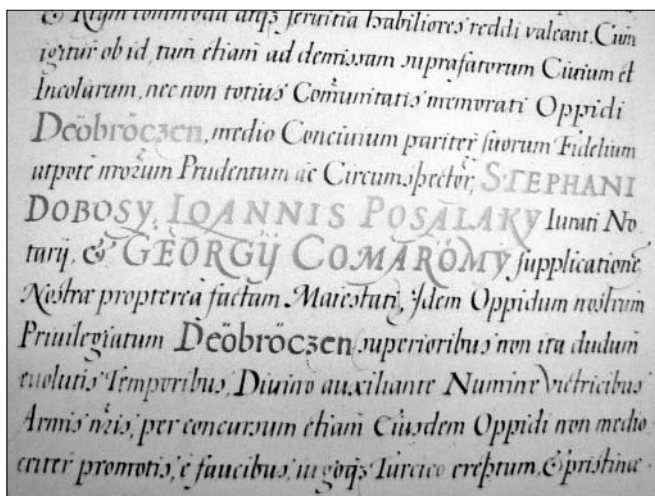 & Regni commoda atqʒ servitia habiliores reddi valeant. Cum
igitur ob id, tum etiam ad demissam suprafatorum Civium et
Incolarum, nec non totius Com̃unitatis memorati Oppidi
Deöbröczen, medio Concivium pariter suorum Fidelium
utpote nr̃orum Prudentum ac Circumspector, STEPHANI
DOBOSY, IOANNIS POSALAKY Iurati No
tarÿ, & GEORGIJ COMAROMY supplicatione
Nostræ propterea factam Maiestati, Idem Oppidum nostrum
Priuilegiatum Deöbröczen superioribus non ita dudum
evolutis Temporibus, Divino auxiliante Numine Victricibus
Armis nr̃is, per concursum etiam Eiusdem Oppidi non medio
criter promotis, e faucibus, iugoqʒ Turcico ereptum, & pristinæ